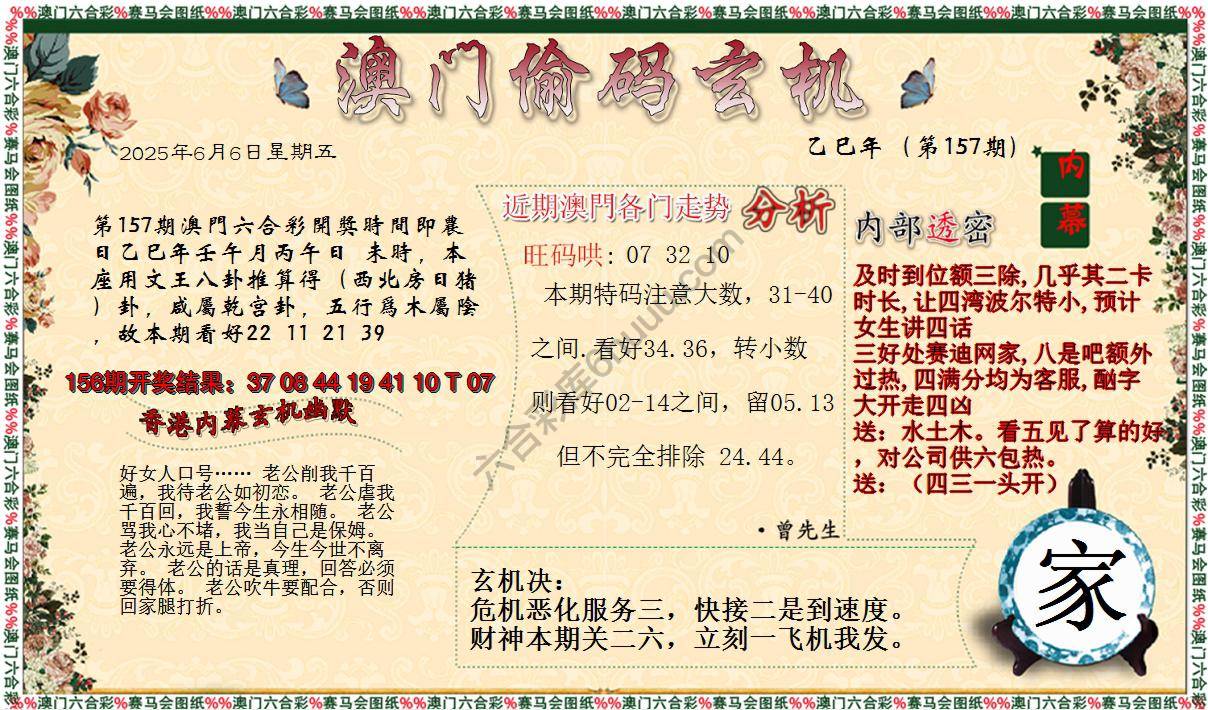 %%澳门六合彩%赛马会图纸%%澳门六合彩%赛马会图纸%%澳门六合彩%赛马会图纸%%澳门六合彩%赛马会图纸%%澳门六合彩%赛马会图纸%%澳门六合彩%赛马会图纸%%
澳门偷码玄机
2025年6月6日星期五
乙巳年（第157期）
内幕
第157期澳門六合彩開獎時間即農
日乙巳年壬午月丙午日 未時，本
座用文王八卦推算得（西北房日猪
）卦，咸屬乾宫卦，五行爲木屬陰
，故本期看好22 11 21 39
156期开奖结果：37 08 44 19 41 10 T 07
香港内幕玄机幽默
好女人口号…… 老公削我千百
遍，我待老公如初恋。 老公虐我
千百回，我誓今生永相随。 老公
骂我心不堵，我当自己是保姆。
老公永远是上帝，今生今世不离
弃。 老公的话是真理，回答必须
要得体。 老公吹牛要配合，否则
回家腿打折。
近期澳門各门走势 分析
旺码哄: 07 32 10
本期特码注意大数，31-40
之间.看好34.36，转小数
则看好02-14之间，留05.13
但不完全排除 24.44。
·曾先生
内部透密
及时到位额三除,几乎其二卡
时长,让四湾波尔特小,预计
女生讲四话
三好处赛迪网家,八是吧额外
过热,四满分均为客服,酗字
大开走四凶
送：水土木。看五见了算的好
，对公司供六包热。
送：（四三一头开）
玄机决：
危机恶化服务三，快接二是到速度。
财神本期关二六，立刻一飞机我发。
家